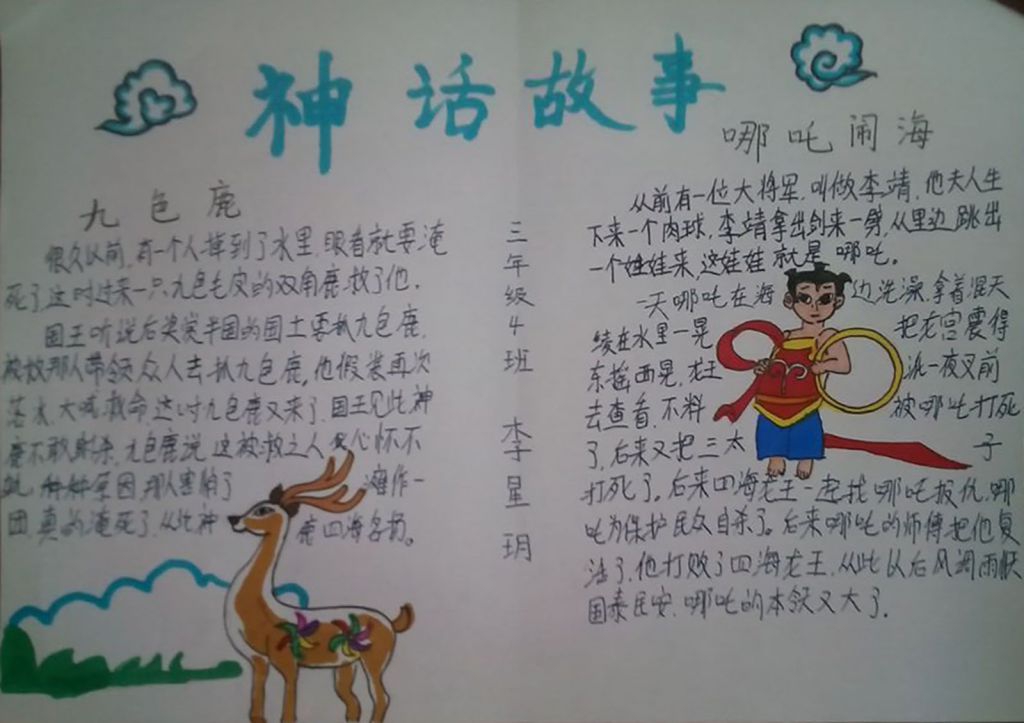 神话故事
九色鹿
很久以前,有一个人掉到了水里,眼看就要淹
死了,这时过来一只九色毛皮的双角鹿,救了他。
国王听说后奖赏半国的国土要抓九色鹿,
被救那人带领众人去抓九色鹿,他假装再次
落水,大喊救命,这时九色鹿又来了,国王见此神
鹿不敢射杀,九色鹿说,这被救之人 心怀不
种种原因,那人害怕了 缩作一
团,真的淹死了,从此神 鹿四海名扬。
三年级4班 李星玥
哪吒闹海
从前有一位大将军,叫做李靖,他夫人生
下来一个肉球,李靖拿出剑来一劈,从里边跳出
一个娃娃来,这娃娃就是哪吒。
一天哪吒在海 边洗澡,拿着混天
绫在水里一晃 把龙宫震得
东摇西晃,龙王 派一夜叉前
去查看,不料 被哪吒打死
了,后来又把三太 子
打死了。后来四海龙王一起找哪吒报仇,哪
吒为保护民众自杀了。后来哪吒的师傅把他复
活了,他打败了四海龙王,从此以后风调雨顺
国泰民安,哪吒的本领又大了。